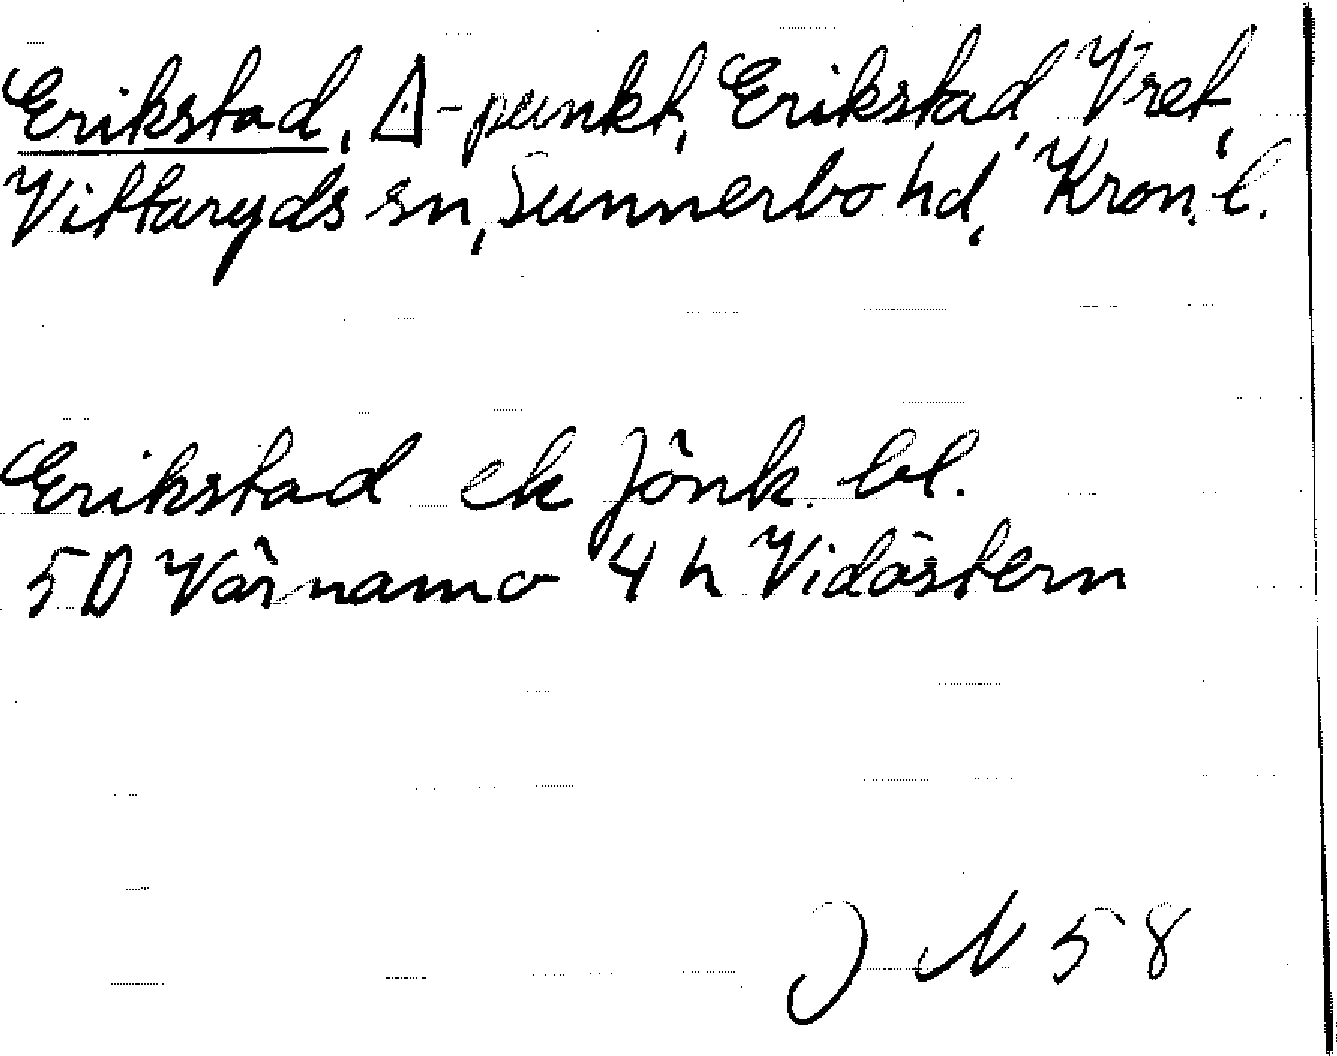 Erikstad, Δ-punkt, Erikstad, Vret,
Vittaryds sn, Sunnerbo hd, Kron. l.
Erikstad ek Jönk. bl.
5D Värnamo 4 h Vidöstern
J N 58